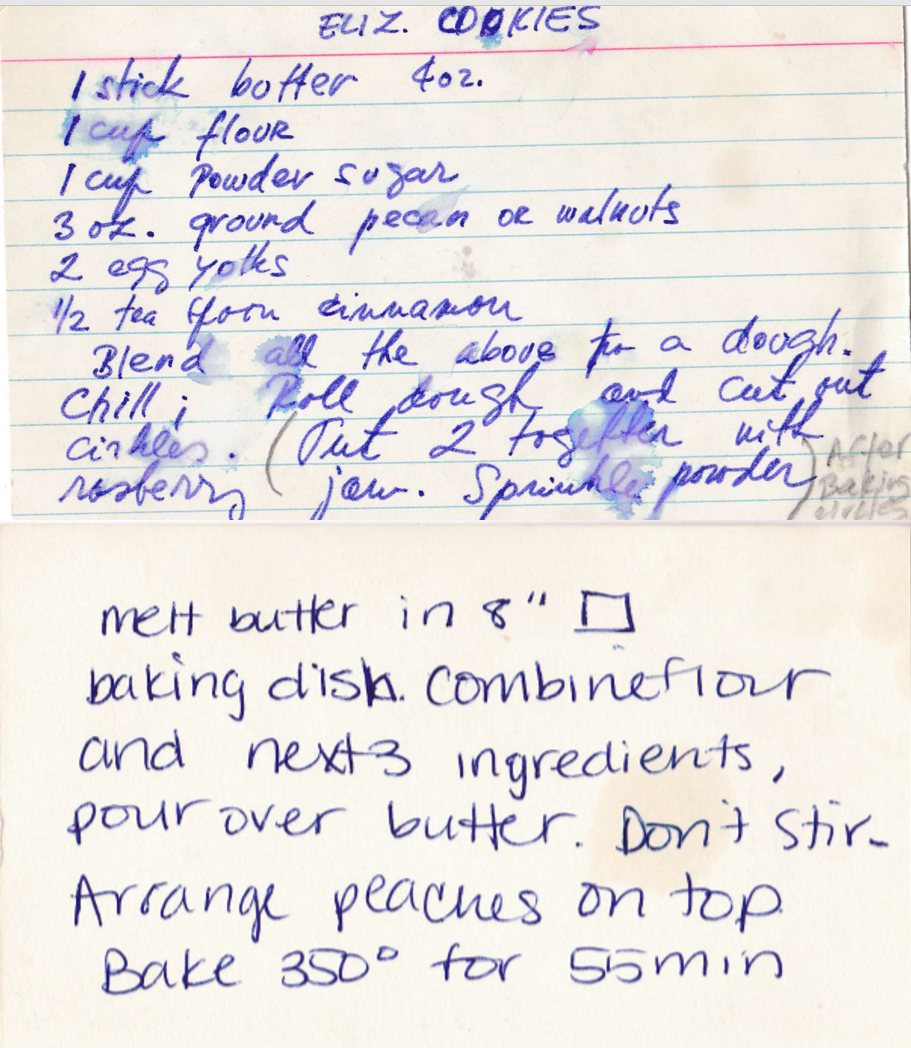 ELIZ. COOKIES
1 stick butter 4oz.
1 cup flour
1 cup Powder sugar
3 oz. ground pecan or walnuts
2 egg yolks
1/2 tea spoon cinnamon
Blend all the above to a dough.
Chill; Roll dough and cut out
cirkles. (Put 2 together with
rasberry jam. Sprinkle powder)
After
Baking
circles
melt butter in 8" □
baking dish. Combine flour
and next 3 ingredients,
pour over butter. Don't stir.
Arrange peaches on top
Bake 350° for 55 min